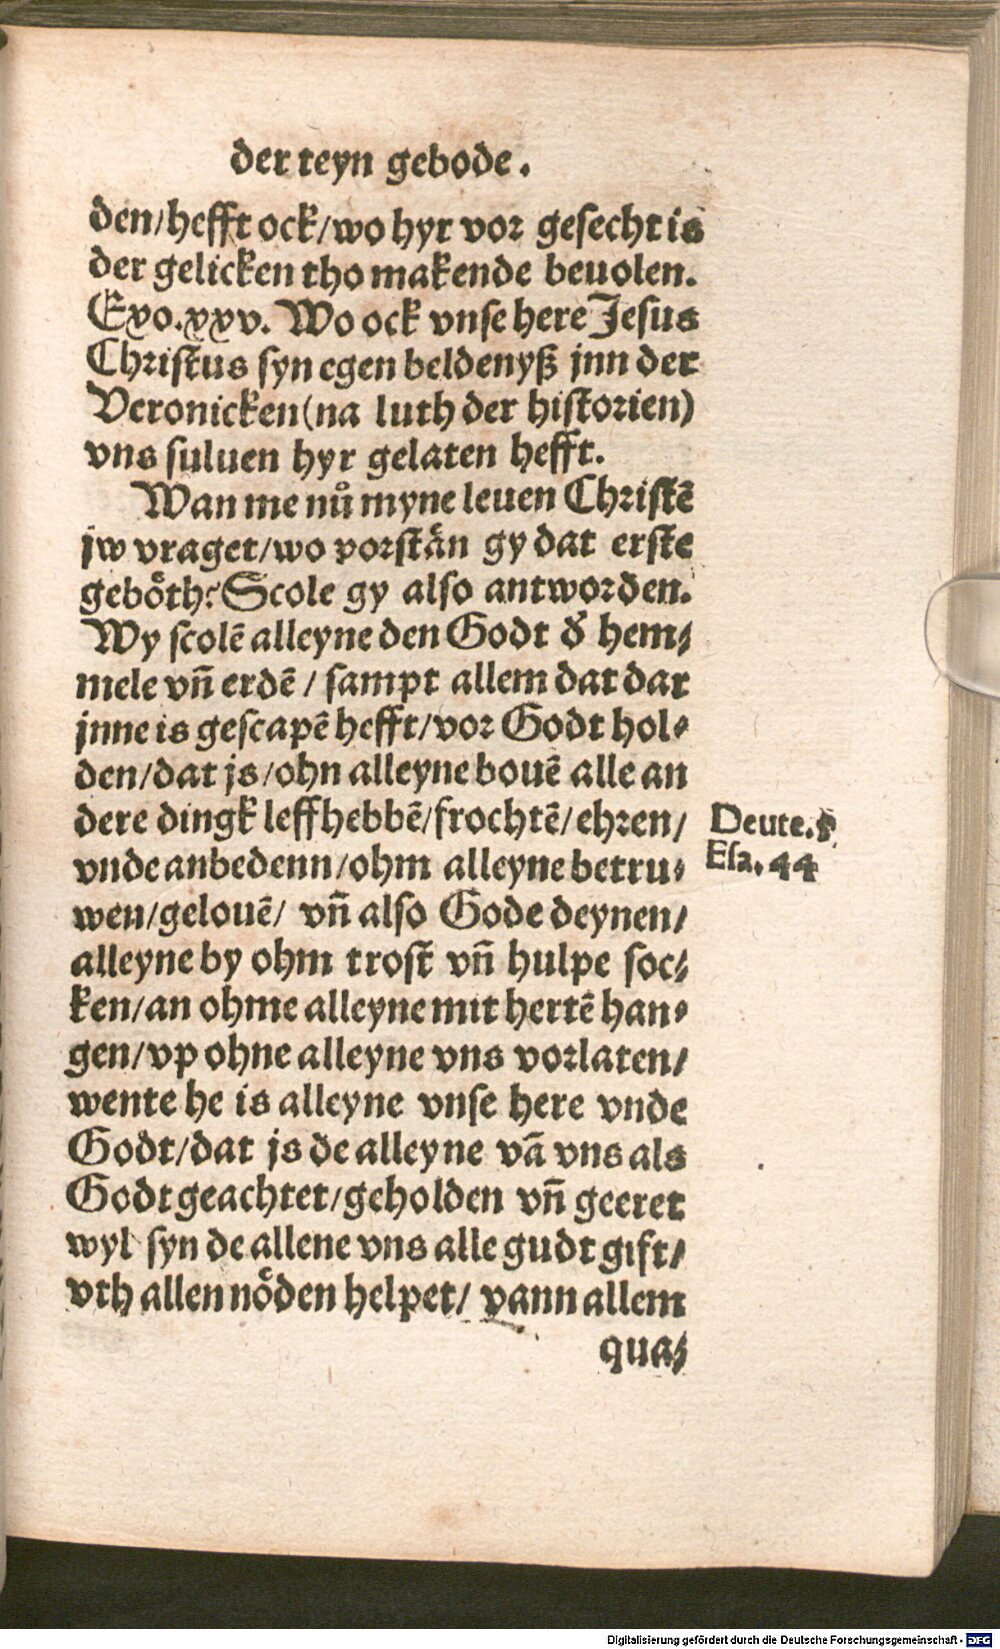 der teyn gebode.
den/hefft ock/wo hyr vor gesecht is
der gelicken tho makende beuolen.
Exo.xxv. Wo ock vnse here Jesus
Christus syn egen beldenyß jnn der
Veronicken(na luth der historien)
vns suluen hyr gelaten hefft.
Wan me nů myne leuen Christē
jw vraget/wo vorstän gy dat erste
geböth: Scole gy also antworden.
Wy scolē alleyne den Godt đ hem⸗
mele vn̄ erdē / sampt allem dat dar
jnne is gescapē hefft/vor Godt hol⸗
den/dat js/ohn alleyne bouē alle an
dere dingk leffhebbē/frochtē/ehren/
vnde anbedenn/ohm alleyne betru⸗
wen/gelouē/ vn̄ also Gode deynen/
alleyne by ohm trost vn̄ hulpe soc⸗
ken/an ohme alleyne mit hertē han⸗
gen/vp ohne alleyne vns vorlaten/
wente he is alleyne vnse here vnde
Godt/dat js de alleyne vā vns als
Godt geachtet/geholden vn̄ geeret
wyl syn de allene vns alle gudt gift/
vth allen nöden helpet/ vann allem
qua⸗
Deute.5.
Esa.44
Digitalisierung gefördert durch die Deutsche Forschungsgemeinschaft - DFG